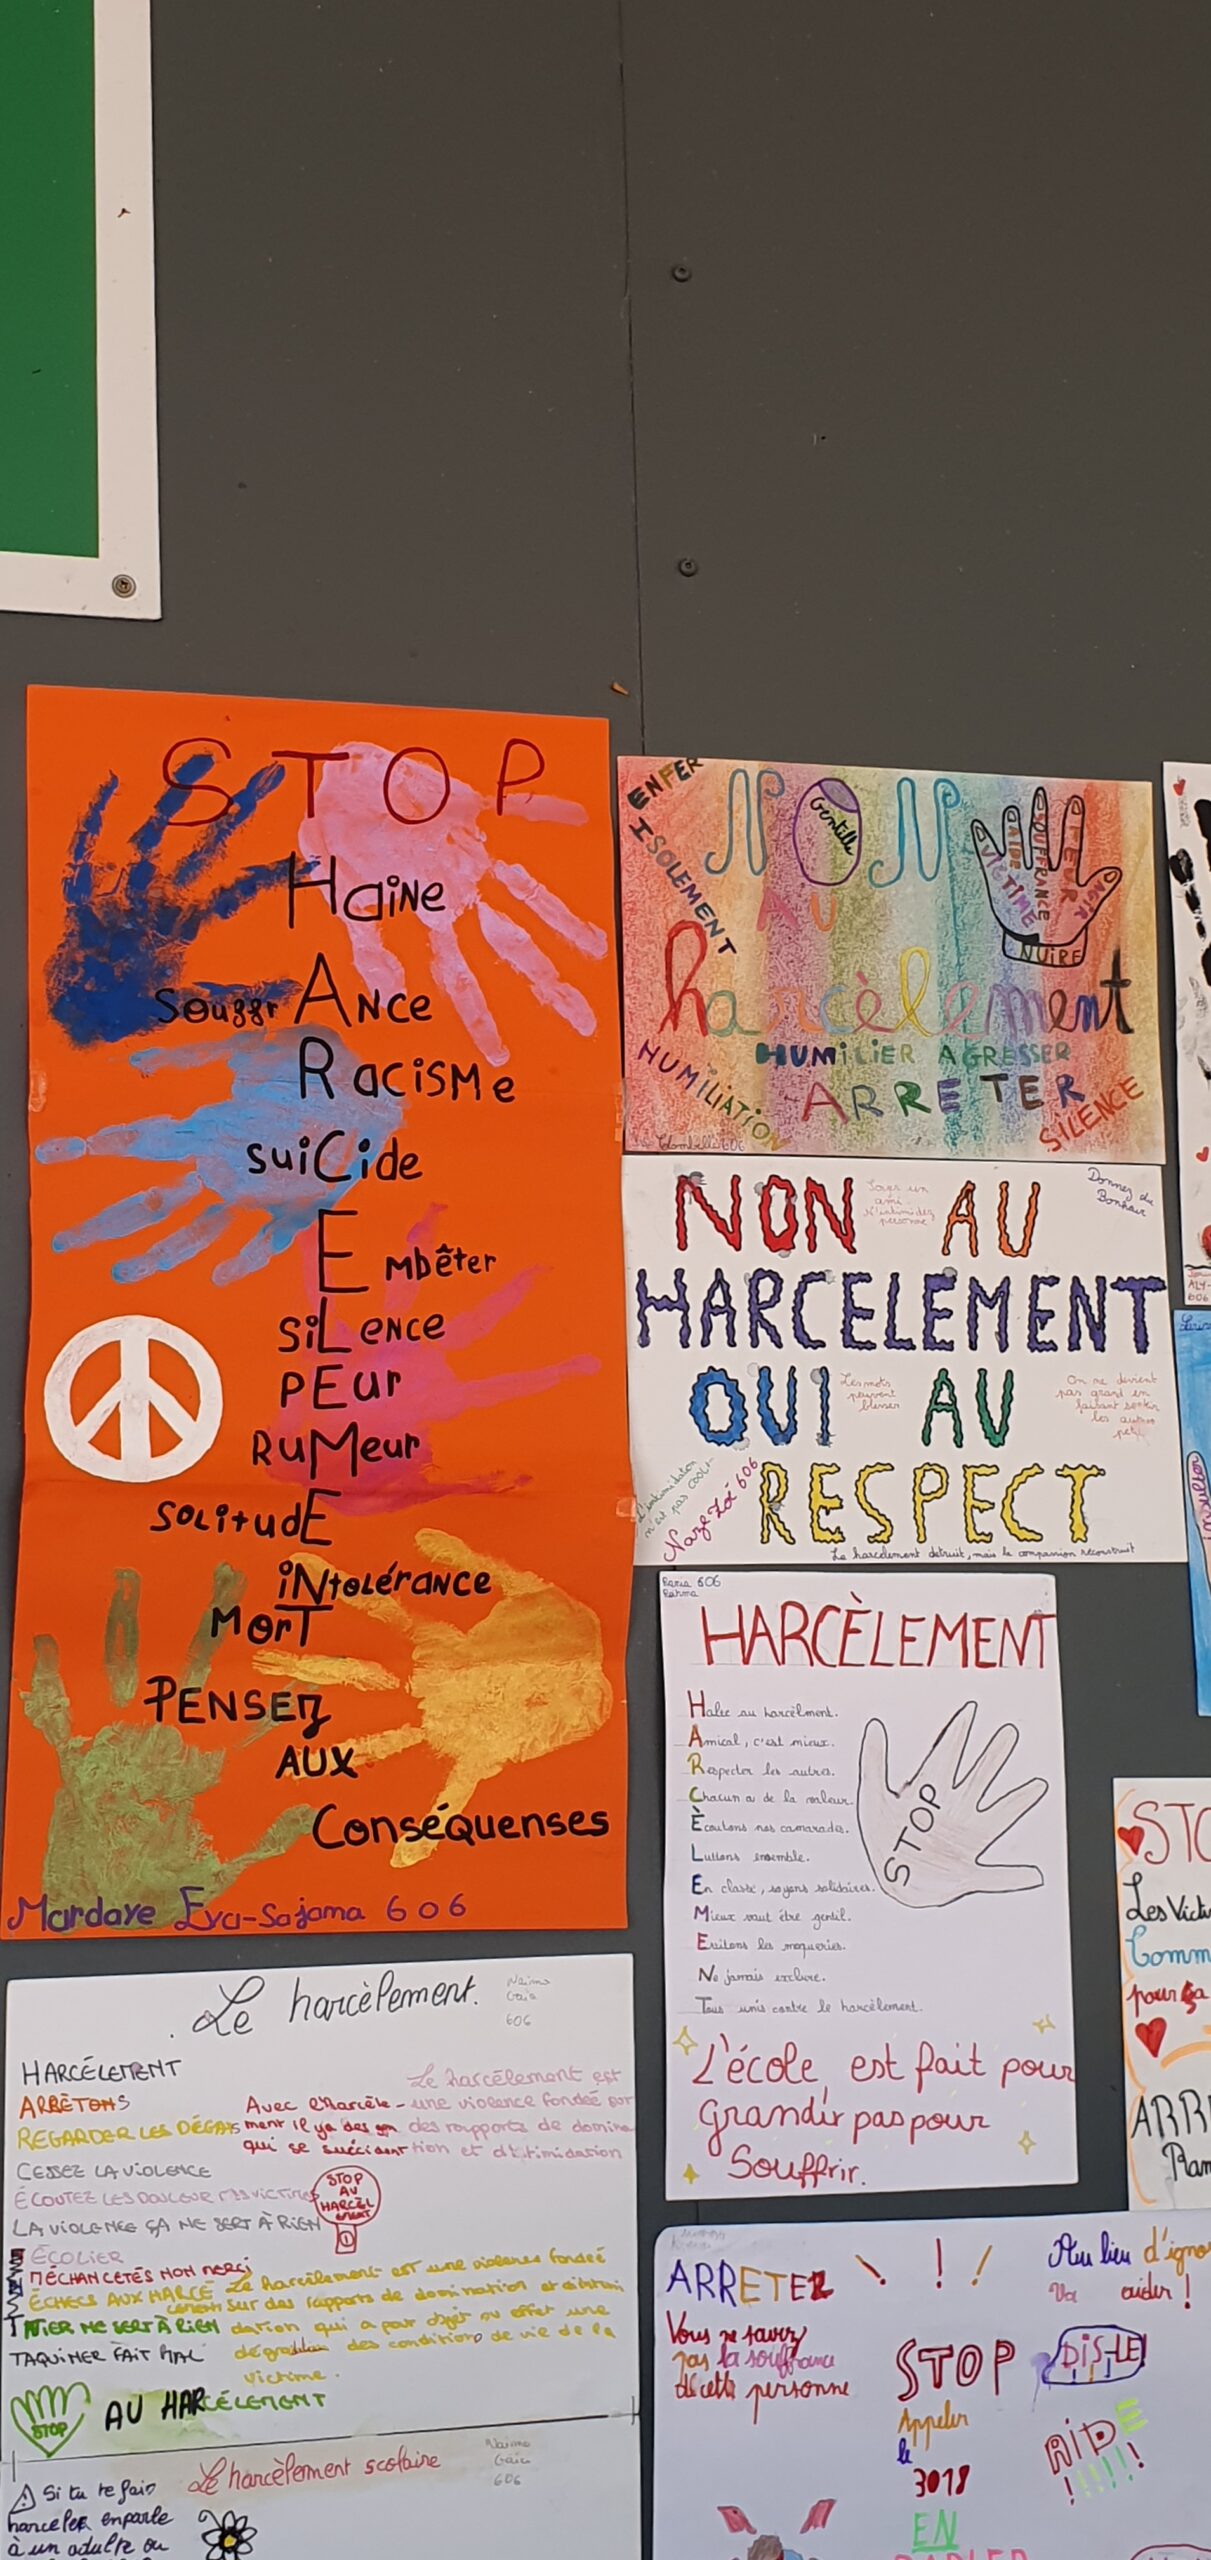 STOP
HaiNe
SouffrANce
Racisme
suiCide
Embêter
siLence
pEur
RuMeur
solitudE
iNtolérance
MorT
PENSEZ
AUX
Conséquenses
Mardaye Eva-Sajama 606
ENFER
ISOLEMENT
NON
Gentille
VICTIME
AIDE
SOUFFRANCE
PEUR
NUIRE
AU
harcèlement
HUMILIER AGRESSER
HUMILIATION
ARRETER
SILENCE
NON AU
Soyer un
ami.
N'intimidez
personne
Donnez du
Bonheur
HARCELEMENT
OUI AU
Les mots
peuvent
blesser
On ne devient
pas grand en
faisant sentir
les autres
petit
RESPECT
L'intimidation
n'est pas cool
Naze Zoé 606
Le harcelement détruit, mais la compassion reconstruit
606
HARCÈLEMENT
Halte au harcèlment.
Amical, c'est mieux.
Respecter les autres.
Chacun a de la valeur.
Écoutons nos camarades.
Luttons ensemble.
En classe, soyons solidaires.
Mieux vaut être gentil.
Evitons les moqueries.
Ne jamais exclure.
Tous unis contre le harcèlement.
STOP
L'école est fait pour
grandir pas pour
Souffrir.
Le harcèlement.
Naima
Gaia
606
HARCÉLEMENT
ARRÊTONS
REGARDER LES DÉGATS
CESSEZ LA VIOLENCE
ÉCOUTEZ LES DOULEUR DES VICTIMES
LA VIOLENCE ÇA NE SERT À RIEN
ÉCOLIER
MÉCHANCETÉS NON MERCI
ÉCHECS AUX HARCÉ
NIER NE SERT À RIEN
TAQUINER FAIT MAL
Avec l'harcèle-
ment il ya des
qui se succident
Le harcélement est
une violence fondeé sur
des rapports de domina
tion et d'intimidation
STOP
AU
HARCEL
EMENT
Le harcélement est une violence fondeé
sur des rapports de domination et d'intimi
dation qui a pour objet ou effet une
dégradation des conditions de vie de la
victime.
STOP
AU HARCÉLEMENT
Le harcèlement scolaire
Naima
Gaia
606
Si tu te fais
harceler enparle
à un adulte ou
ARRETEZ ! ! !
Vous ne savez
pas la souffrance
de cette personne
Au lieu d'igno
Va aider !
STOP
DIS-LE!
Appeler
le
3018
EN
PARLER
AIDE
!!!!!
STO
Les Victi
Comm
pour ça
ARR
606